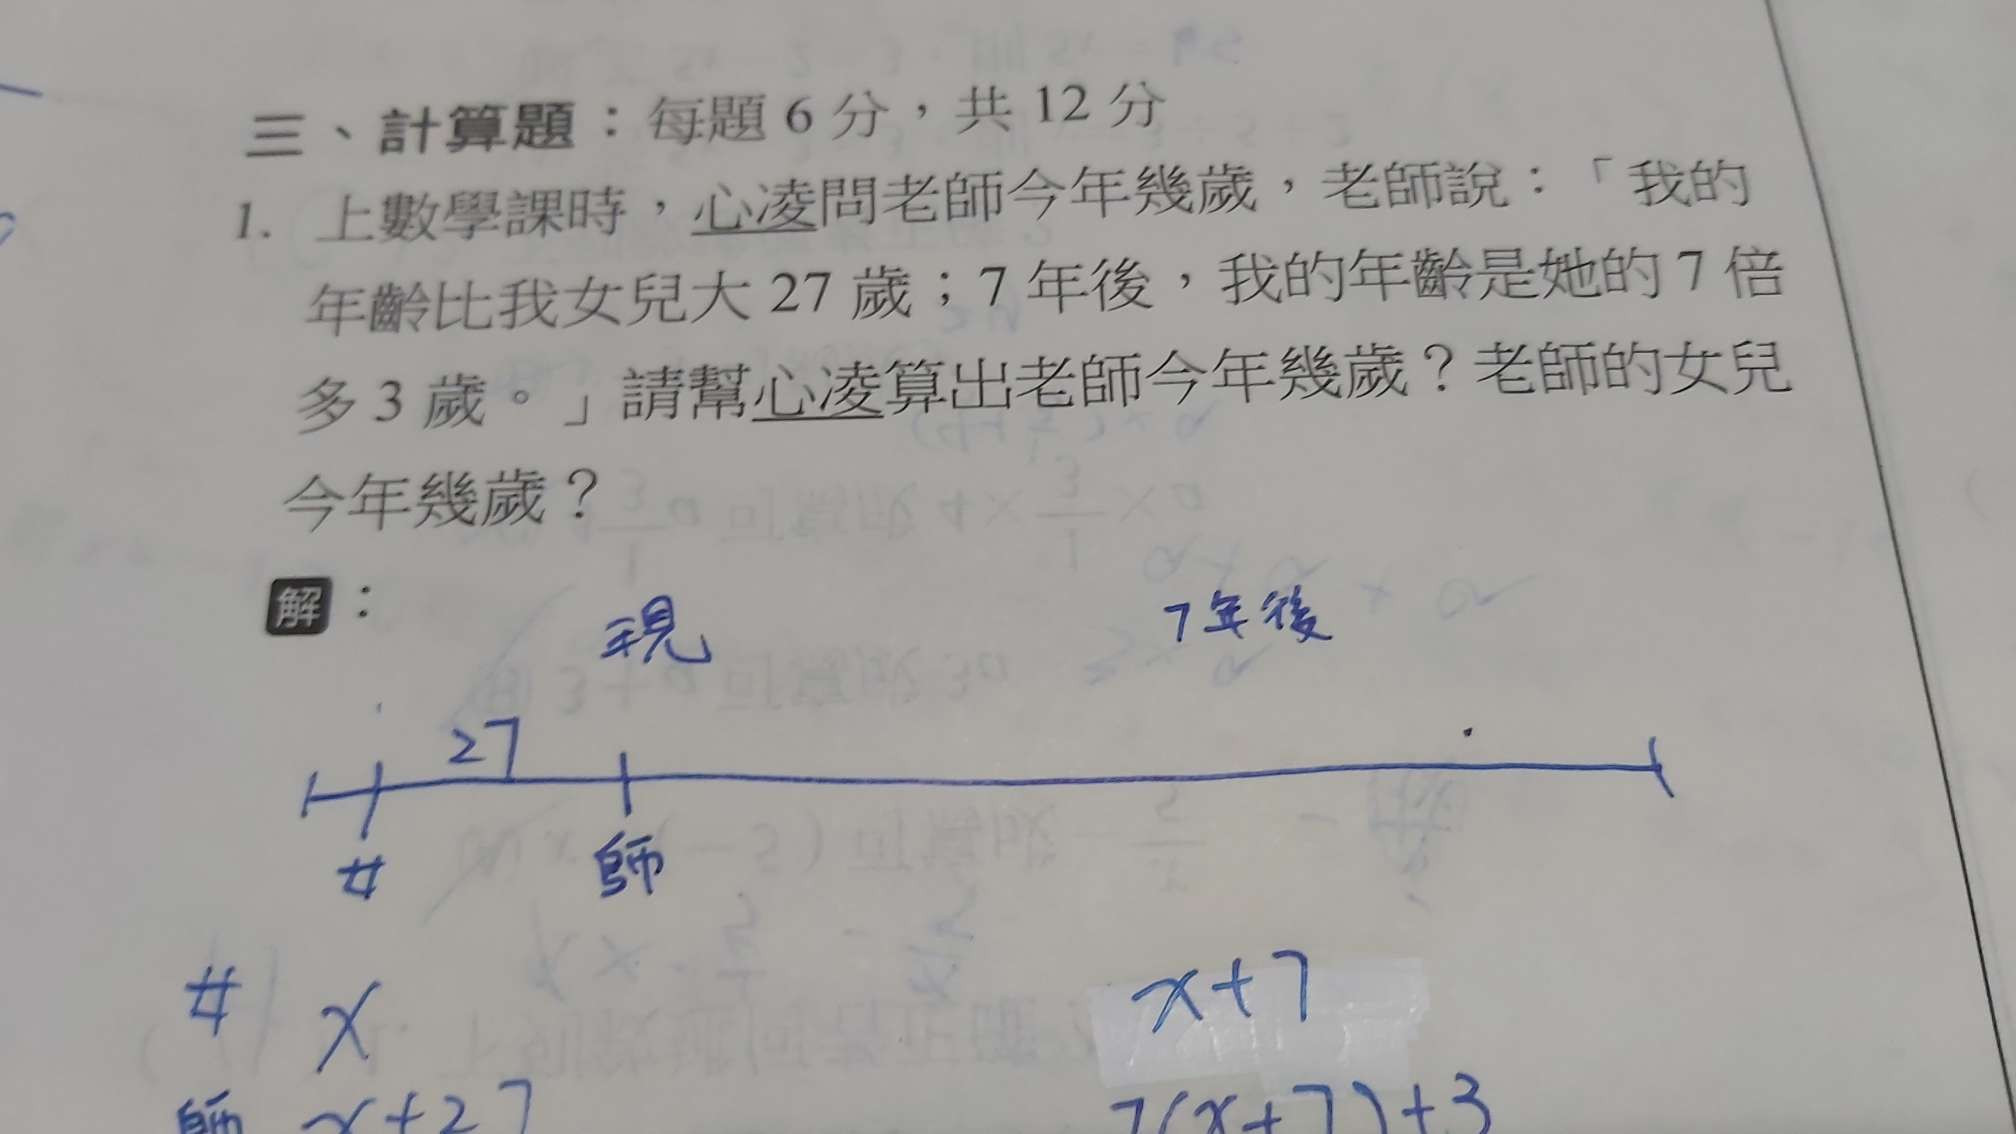 三、計算題：每題 6 分，共 12 分
1. 上數學課時，心凌問老師今年幾歲，老師說：「我的
年齡比我女兒大 27 歲；7 年後，我的年齡是她的 7 倍
多 3 歲。」請幫心凌算出老師今年幾歲？老師的女兒
今年幾歲？
解：
現 7年後
27
女 師
女 x x+7
師 x+27 7(x+7)+3